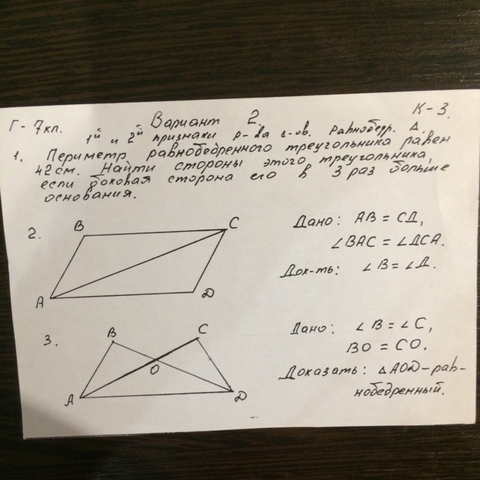 Г - 7кл. Вариант 2 К-3.
1й и 2й признаки р-ва △-ов. Равнобедр. △.
1. Периметр равнобедренного треугольника равен
42 см. Найти стороны этого треугольника,
если боковая сторона его в 3 раз больше
основания.
2. B C A D
Дано: AB = CD,
∠BAC = ∠DCA.
Док-ть: ∠B = ∠D.
3. B C O A D
Дано: ∠B = ∠C,
BO = CO.
Доказать: △AOD - рав-
нобедренный.